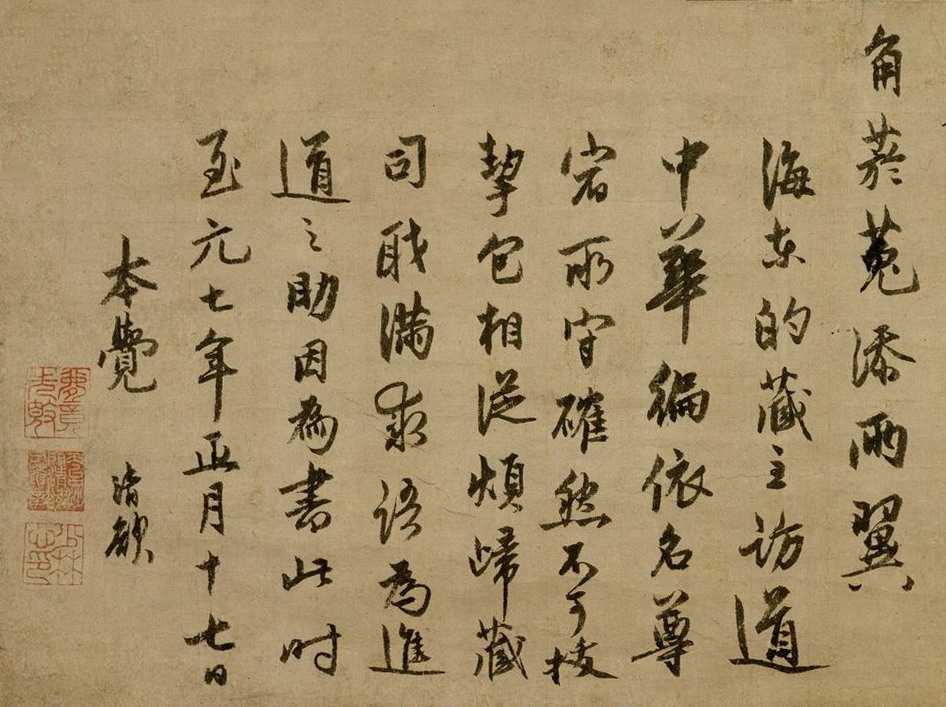 角菸菟添兩翼
海東的藏主訪道
中華徧依名尊
宿所守確然不可拔
挈包相從煩歸藏
司職滿求語為進
道之助因為書此时
至元七年正月十七日
本覺 清欲